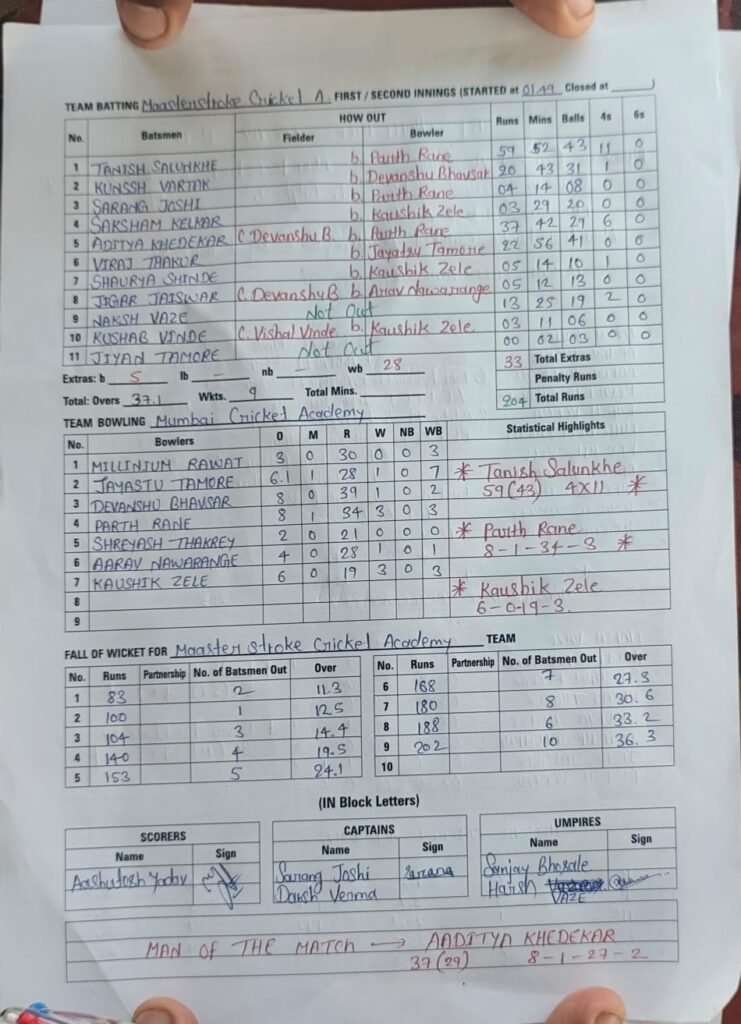 TEAM BATTING Maasterstroke Cricket A. FIRST / SECOND INNINGS (STARTED at 01.49 Closed at ______)
No. Batsmen HOW OUT Runs Mins Balls 4s 6s
Fielder Bowler
1 TANISH SALUNKHE b. Parth Rane 59 52 43 11 0
2 KUNSSH VARTAK b. Devanshu Bhavsar 20 43 31 1 0
3 SARANG JOSHI b. Parth Rane 04 14 08 0 0
4 SAKSHAM KELKAR b. Kaushik Zele 03 29 20 0 0
5 ADITYA KHEDEKAR C. Devanshu B. b. Parth Rane 37 42 29 6 0
6 VIRAJ THAKUR b. Jayatsu Tamore 22 56 41 0 0
7 SHAURYA SHINDE b. Kaushik Zele 05 14 10 1 0
8 JIGAR JAISWAR C. Devanshu B b. Arav Nawarange 05 12 13 0 0
9 NAKSH VAZE Not Out 13 25 19 2 0
10 RUSHAB VINDE C. Vishal Vinde b. Kaushik Zele 03 11 06 0 0
11 JIYAN TAMORE Not Out 00 02 03 0 0
Extras: b 5 lb - nb - wb 28 33 Total Extras
Penalty Runs
Total: Overs 37.1 Wkts. 9 Total Mins. ______ 204 Total Runs
TEAM BOWLING Mumbai Cricket Academy
No. Bowlers O M R W NB WB Statistical Highlights
1 MILLINIUM RAWAT 3 0 30 0 0 3
2 JAYASTU TAMORE 6.1 1 28 1 0 7 * Tanish Salunkhe
3 DEVANSHU BHAVSAR 8 0 39 1 0 2 59(43) 4x11 *
4 PARTH RANE 8 1 34 3 0 3
5 SHREYASH THAKREY 2 0 21 0 0 0 * Parth Rane
6 AARAV NAWARANGE 4 0 28 1 0 1 8-1-34-3 *
7 KAUSHIK ZELE 6 0 19 3 0 3
8 * Kaushik Zele
9 6-0-19-3
FALL OF WICKET FOR Maaster stroke Cricket Academy TEAM
No. Runs Partnership No. of Batsmen Out Over No. Runs Partnership No. of Batsmen Out Over
1 83 2 11.3 6 168 7 27.3
2 100 1 12.5 7 180 8 30.6
3 104 3 14.4 8 188 6 33.2
4 140 4 19.5 9 202 10 36.3
5 153 5 24.1 10
(IN Block Letters)
SCORERS CAPTAINS UMPIRES
Name Sign Name Sign Name Sign
Aashutosh Yadav Sarang Joshi Sarang Sanjay Bhosale
Darsh Verma Harsh VAZE
MAN OF THE MATCH → AADITYA KHEDEKAR
37(29) 8-1-27-2